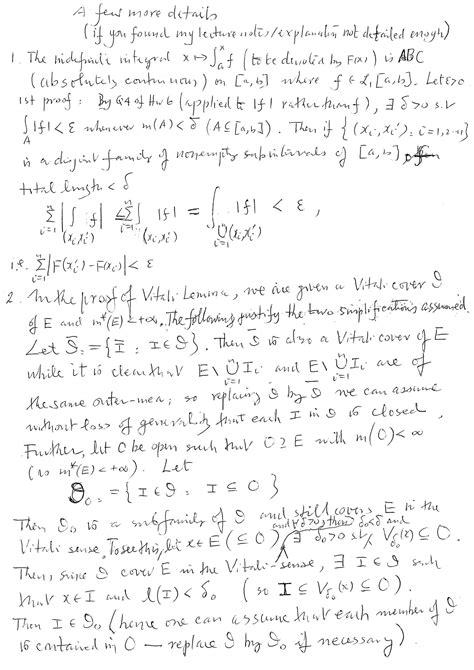 A few more details
(if you found my lecture notes/explanation not detailed enough)
1. The indefinite integral x ↦ ∫_a^x f (to be denoted by F(x)) is ABC
(absolutely continuous) on [a,b] where f ∈ L₁[a,b]. Let ε>0
1st proof: By Q4 of HW 6 (applied to |f| rather than f), ∃ δ>0 s.t
∫_A |f| < ε whenever m(A) < δ (A ⊆ [a,b]). Then if {(x_i, x_i') : i=1,2..n}
is a disjoint family of nonempty subintervals of [a,b] of
total length < δ
Σ_{i=1}^n |∫_{(x_i,x_i')} f| ≤ Σ_{i=1}^n ∫_{(x_i,x_i')} |f| = ∫_{∪_{i=1}^n (x_i,x_i')} |f| < ε ,
i.e. Σ_{i=1}^n |F(x_i') - F(x_i)| < ε
2. In the proof of Vitali Lemma, we are given a Vitali cover 𝓘
of E and m*(E) < +∞. The following justify the two simplifications assumed.
Let 𝓘̄ := {Ī : I ∈ 𝓘}. Then 𝓘̄ is also a Vitali cover of E
while it is clear that E \ ∪_{i=1}^n I_i and E \ ∪_{i=1}^n Ī_i are of
the same outer-mea; so replacing 𝓘 by 𝓘̄ we can assume
without loss of generality that each I in 𝓘 is closed.
Further, let O be open such that O ⊇ E with m(O) < ∞
(as m*(E) < +∞). Let
𝓘₀ := {I ∈ 𝓘 : I ⊆ O}
Then 𝓘₀ is a subfamily of 𝓘 and still covers E in the
Vitali sense. To see this, let x ∈ E (⊆ O) and δ>0 then ∃ δ₀>0 s.t. δ₀<δ and V_{δ₀}(x) ⊆ O.
Then, since 𝓘 cover E in the Vitali-sense, ∃ I ∈ 𝓘 such
that x ∈ I and l(I) < δ₀ (so I ⊆ V_{δ₀}(x) ⊆ O).
Then I ∈ 𝓘₀ (hence one can assume that each member of 𝓘
is contained in O — replace 𝓘 by 𝓘₀ if necessary).